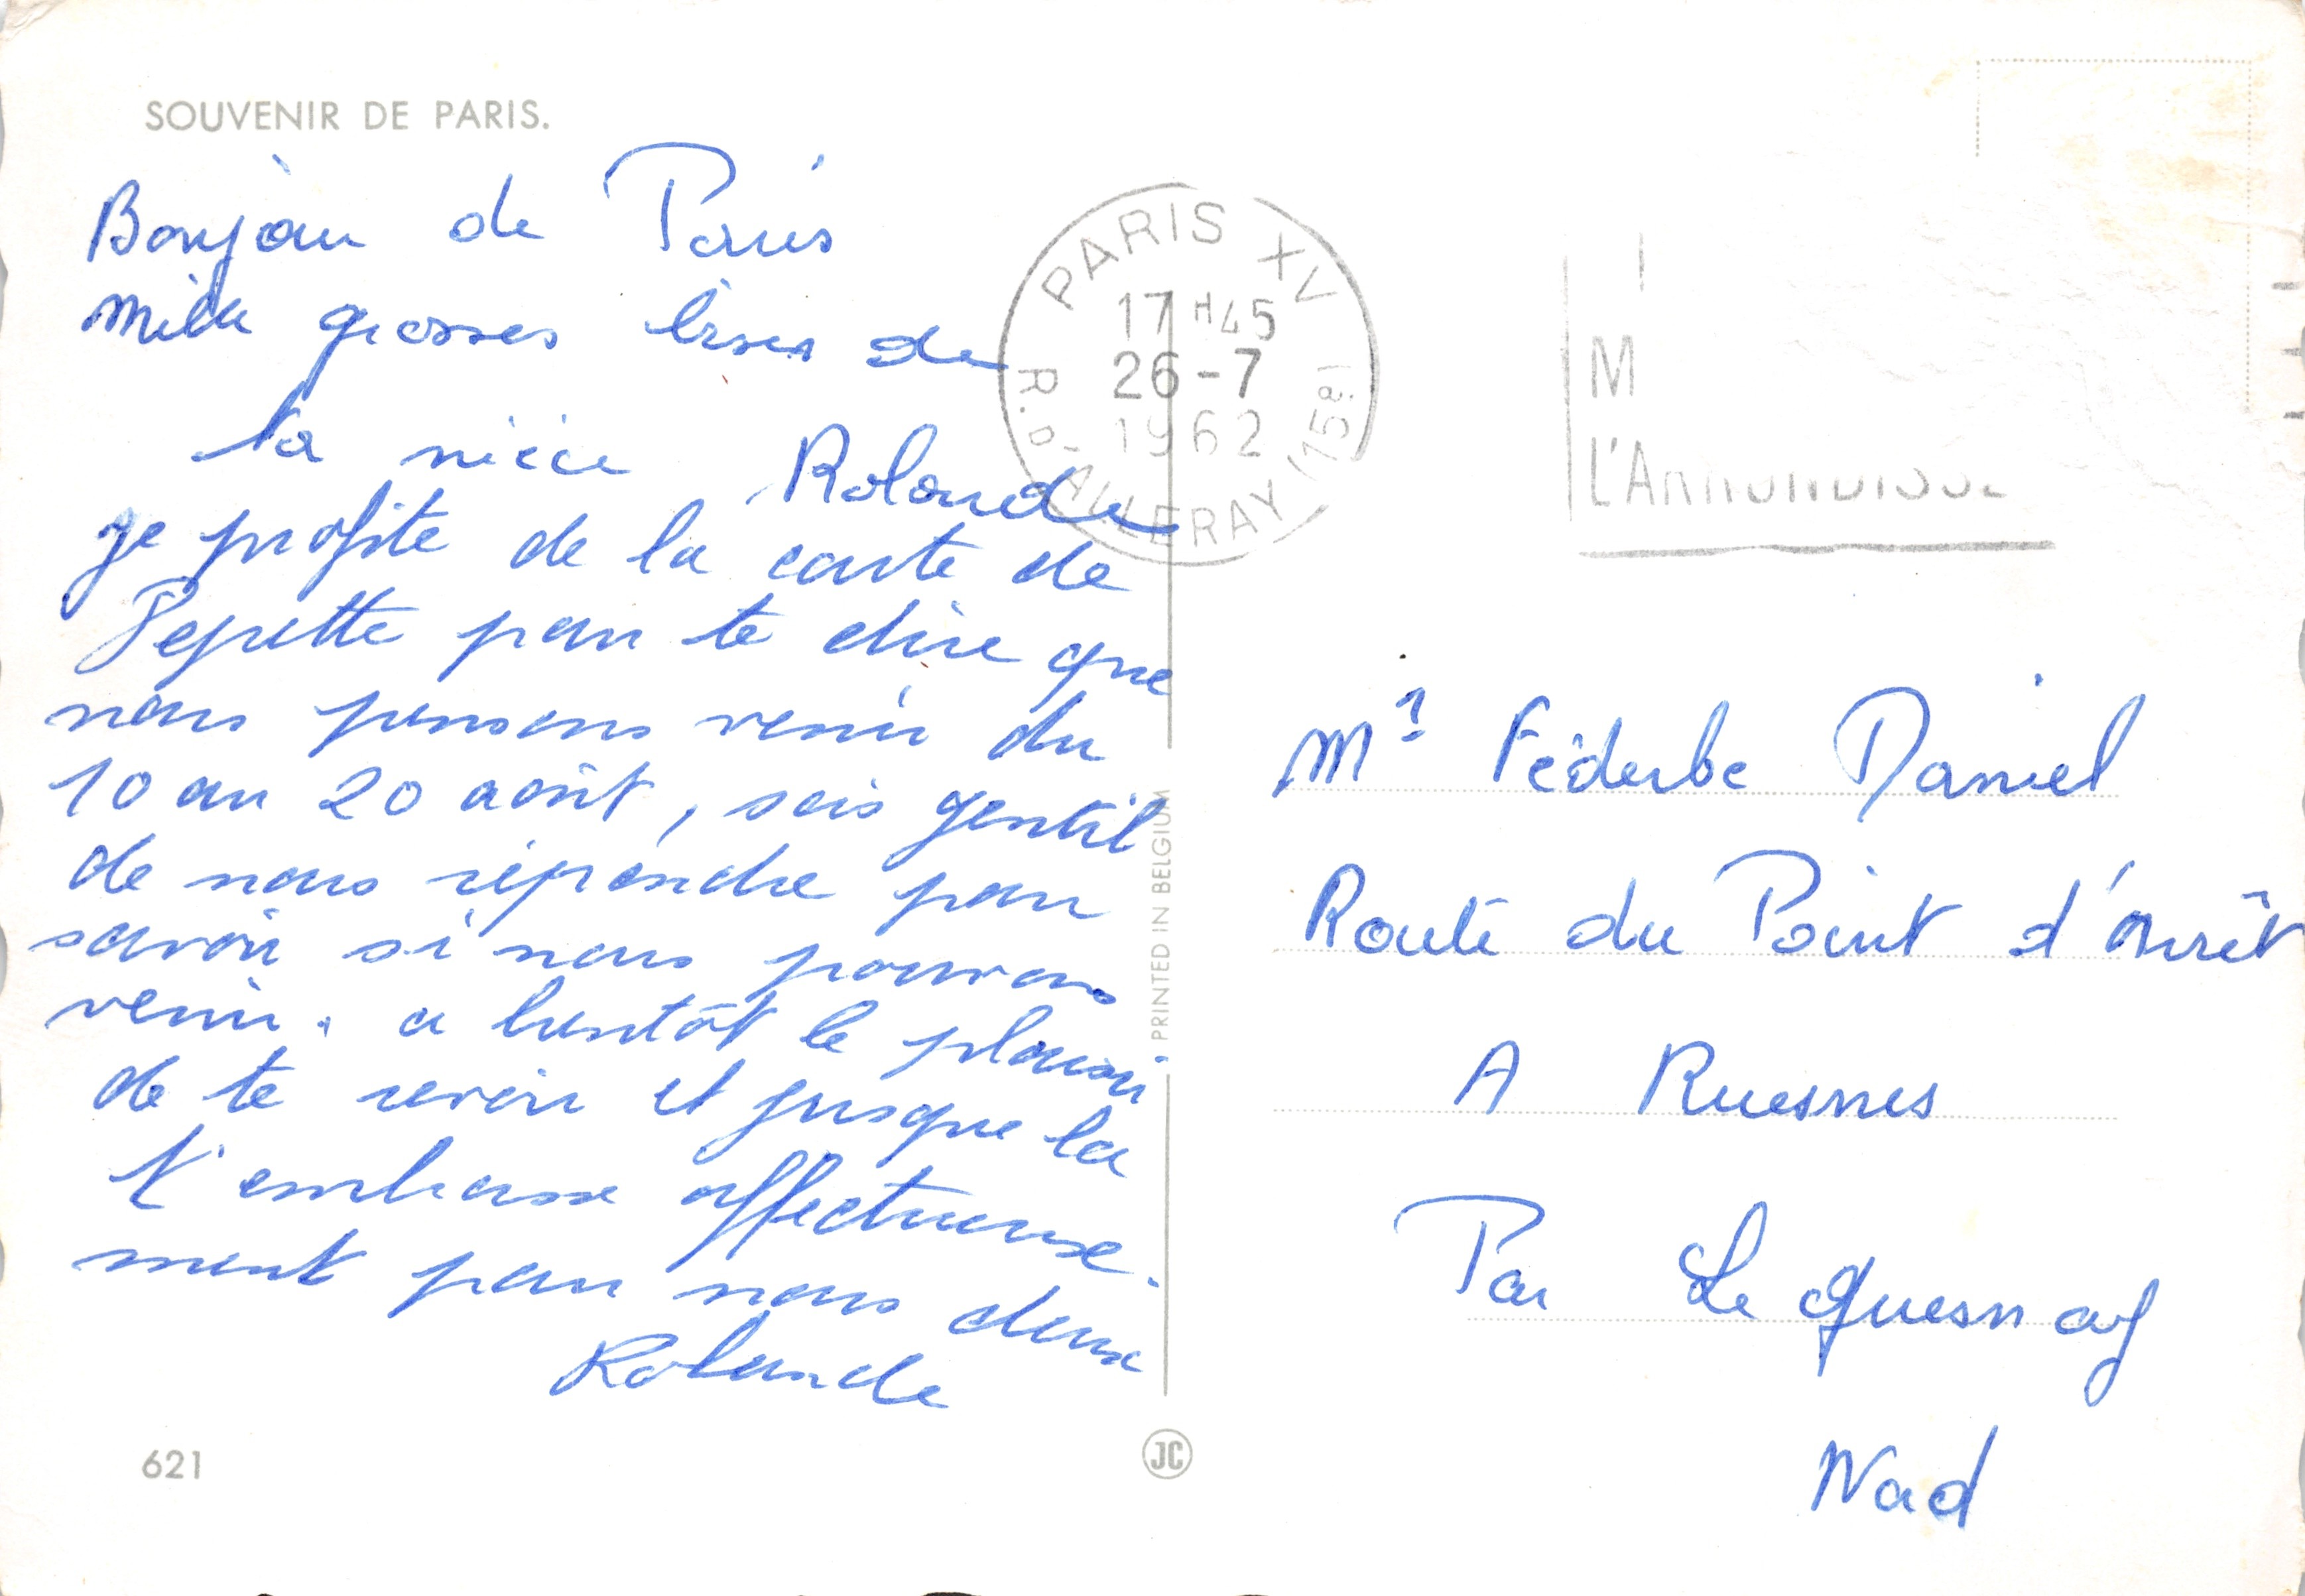 SOUVENIR DE PARIS.
Bonjour de Paris
Mille grosses bises de
ta nièce Rolande
je profite de la carte de
Pepette pour te dire que
nous pensons venir du
10 au 20 août, sois gentil
de nous répondre pour
savoir si nous pouvons
venir. a bientôt le plaisir
de te revoir et jusque la
t'embrasse affectueuse.
ment pour nous deux
Rolande
621
PARIS XV
17H45
26-7
1962
R. D'ALLERAY (15e)
M
PRINTED IN BELGIUM
JC
Mr Féderbe Daniel
Route du Point d'Arrêt
A Ruesnes
Par Le Quesnoy
Nord